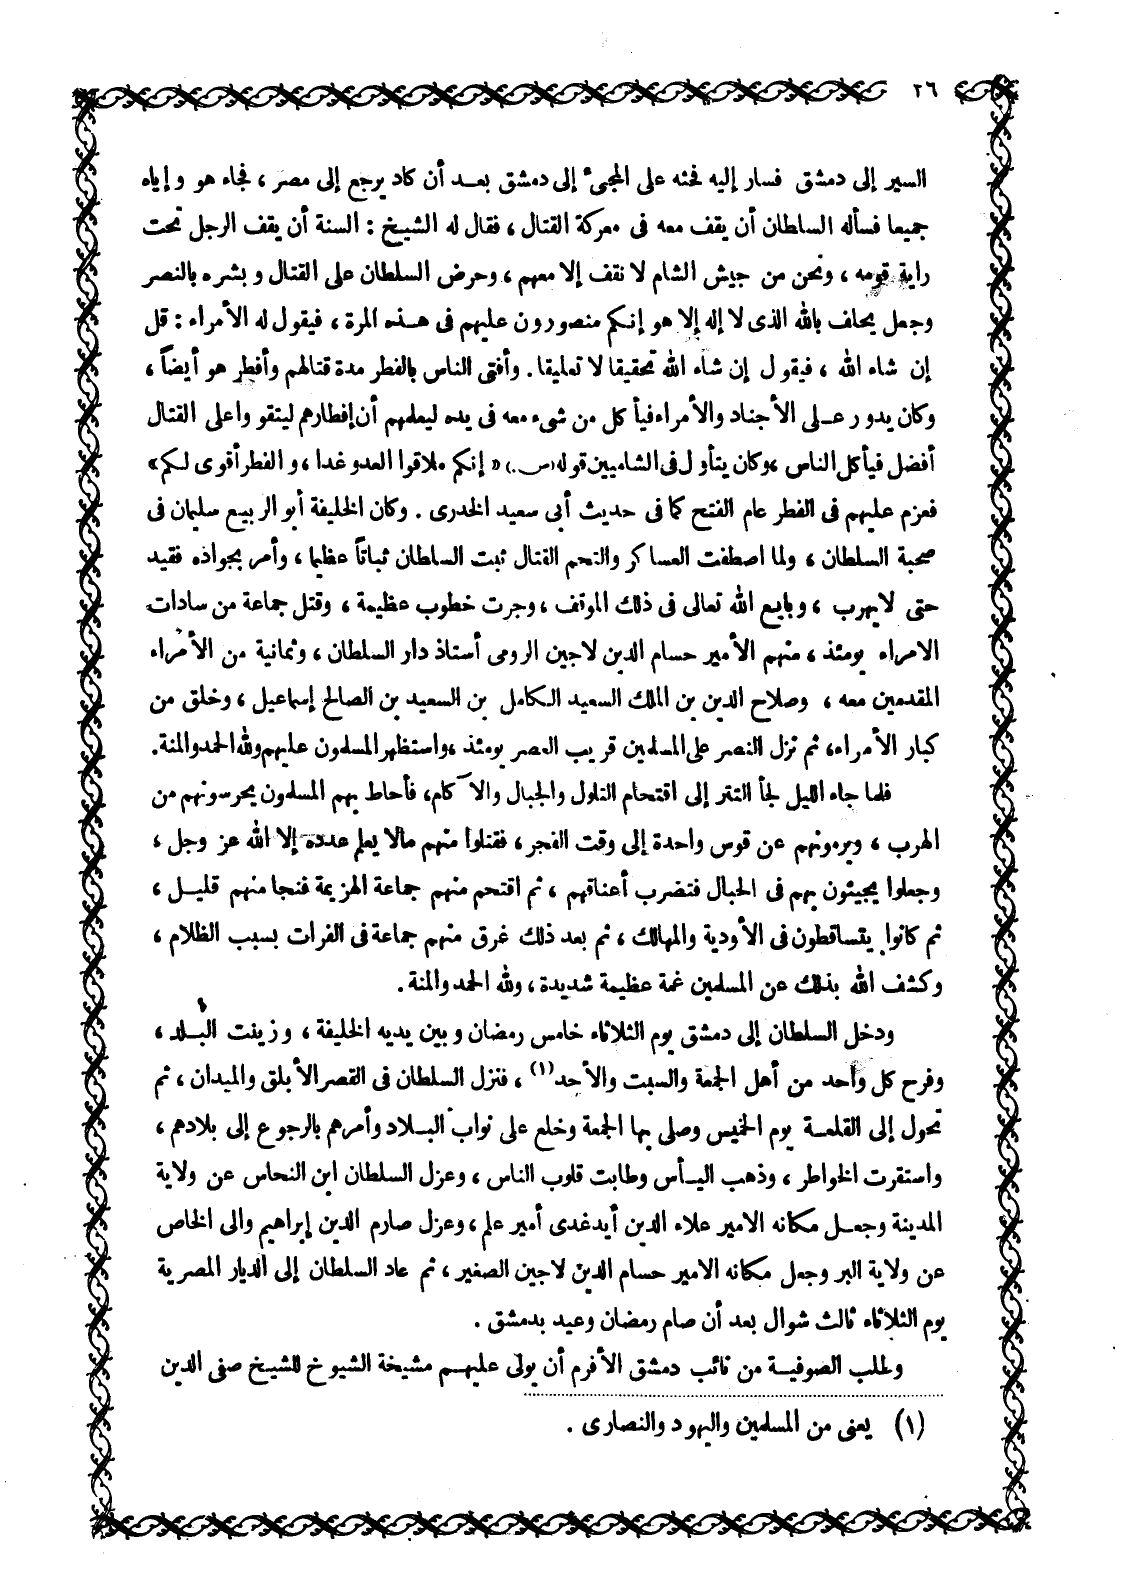 ٢٦
السير إلى دمشق فسار إليه فحثه على المجىء إلى دمشق بعد أن كاد يرجع إلى مصر ، فجاء هو وإياه
جميعا فسأله السلطان أن يقف معه فى معركة القتال ، فقال له الشيخ : السنة أن يقف الرجل تحت
راية قومه ، ونحن من جيش الشام لا نقف إلا معهم ، وحرض السلطان على القتال وبشره بالنصر
وجعل يحلف بالله الذى لا إله إلا هو إنكم منصورون عليهم فى هذه المرة ، فيقول له الأمراء : قل
إن شاء الله ، فيقول إن شاء الله تحقيقا لا تعليقا . وأفتى الناس بالفطر مدة قتالهم وأفطر هو أيضاً ،
وكان يدور على الأجناد والأمراء فيأكل من شىء معه فى يده ليعلمهم أن إفطارهم ليتقووا على القتال
أفضل فيأكل الناس ، وكان يتأول فى الشاميين قوله (س.) « إنكم ملاقوا العدو غدا ، والفطر أقوى لكم »
فعزم عليهم فى الفطر عام الفتح كما فى حديث أبى سعيد الخدرى . وكان الخليفة أبو الربيع سليمان فى
صحبة السلطان ، ولما اصطفت العساكر والتحم القتال ثبت السلطان ثباتاً عظيما ، وأمر بجواده فقيد
حتى لا يهرب ، وبايع الله تعالى فى ذلك الموقف ، وجرت خطوب عظيمة ، وقتل جماعة من سادات
الامراء يومئذ ، منهم الأمير حسام الدين لاجين الرومى أستاذ دار السلطان ، وثمانية من الأمراء
المقدمين معه ، وصلاح الدين بن الملك السعيد الكامل بن السعيد بن الصالح إسماعيل ، وخلق من
كبار الأمراء ، ثم نزل النصر على المسلمين قريب العصر يومئذ ، واستظهر المسلمون عليهم ولله الحمد والمنة .
فلما جاء الليل لجأ التتر إلى اقتحام التلول والجبال والآكام ، فأحاط بهم المسلمون يحرسونهم من
الهرب ، ويرمونهم عن قوس واحدة إلى وقت الفجر ، فقتلوا منهم مالا يعلم عدده إلا الله عز وجل ،
وجعلوا يجيئون بهم فى الحبال فتضرب أعناقهم ، ثم اقتحم منهم جماعة الهزيمة فنجا منهم قليل ،
ثم كانوا يتساقطون فى الأودية والمهالك ، ثم بعد ذلك غرق منهم جماعة فى الفرات بسبب الظلام ،
وكشف الله بذلك عن المسلمين غمة عظيمة شديدة ، ولله الحمد والمنة .
ودخل السلطان إلى دمشق يوم الثلاثاء خامس رمضان وبين يديه الخليفة ، وزينت البلد ،
وفرح كل واحد من أهل الجمعة والسبت والأحد (١) ، فنزل السلطان فى القصر الأبلق والميدان ، ثم
تحول إلى القلعة يوم الخميس وصلى بها الجمعة وخلع على نواب البلاد وأمرهم بالرجوع إلى بلادهم ،
واستقرت الخواطر ، وذهب اليأس وطابت قلوب الناس ، وعزل السلطان ابن النحاس عن ولاية
المدينة وجعل مكانه الامير علاء الدين أيدغدى أمير علم ، وعزل صارم الدين إبراهيم والى الخاص
عن ولاية البر وجعل مكانه الامير حسام الدين لاجين الصغير ، ثم عاد السلطان إلى الديار المصرية
يوم الثلاثاء ثالث شوال بعد أن صام رمضان وعيد بدمشق .
وطلب الصوفية من نائب دمشق الأفرم أن يولى عليهم مشيخة الشيوخ للشيخ صفى الدين
(١) يعنى من المسلمين واليهود والنصارى .